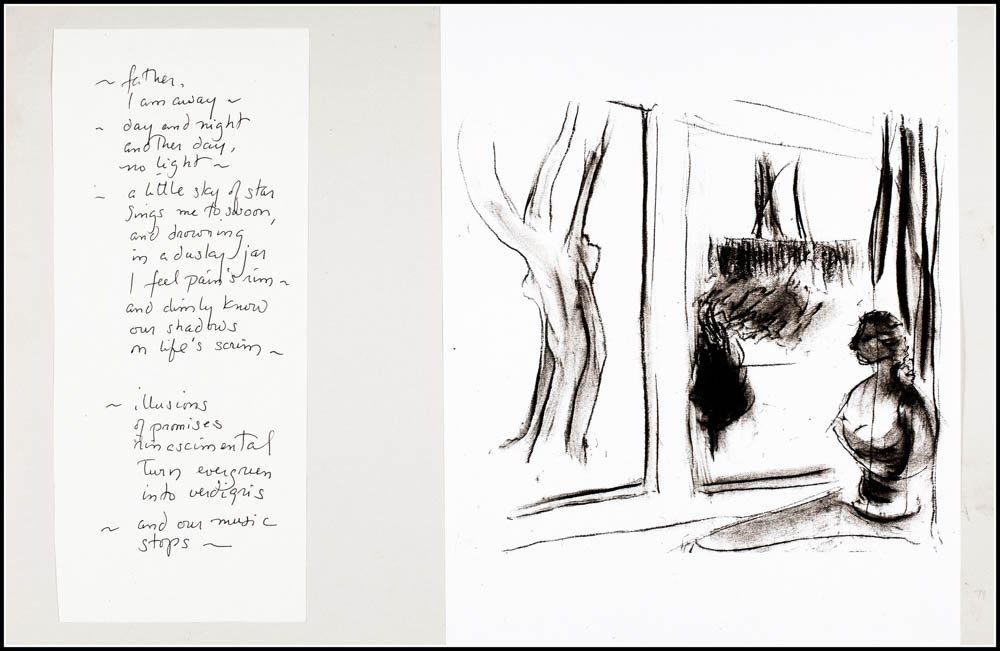 ~ father,
I am away ~
~ day and night
another day,
no light ~
~ a little sky of star
sings me to swoon,
and drowning
in a dusky jar
I feel pain's rim ~
and dimly know
our shadows
on life's scrim ~
~ illusions
of promises
rinascimental
turn evergreen
into verdigris
~ and our music
stops ~